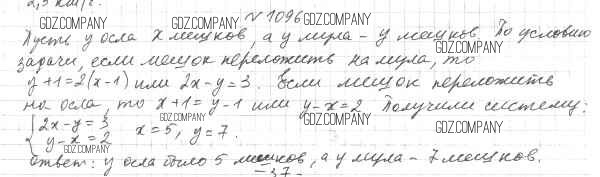 2,5 км/г.
№ 1096
GDZ.COMPANY GDZ.COMPANY GDZ.COMPANY
Пусть у осла x мешков, а у мула - y мешков. По условию
GDZ.COMPANY
задачи, если мешок переложить на мула, то
y+1=2(x-1) или 2x-y=3. Если мешок переложить
GDZ.COMPANY GDZ.COMPANY
на осла, то x+1=y-1 или y-x=2. Получили систему:
GDZ.COMPANY GDZ.COMPANY
{2x-y=3
y-x=2 x=5, y=7.
GDZ.COMPANY
GDZ.COMPANY
Ответ: у осла было 5 мешков, а у мула - 7 мешков.
-37-